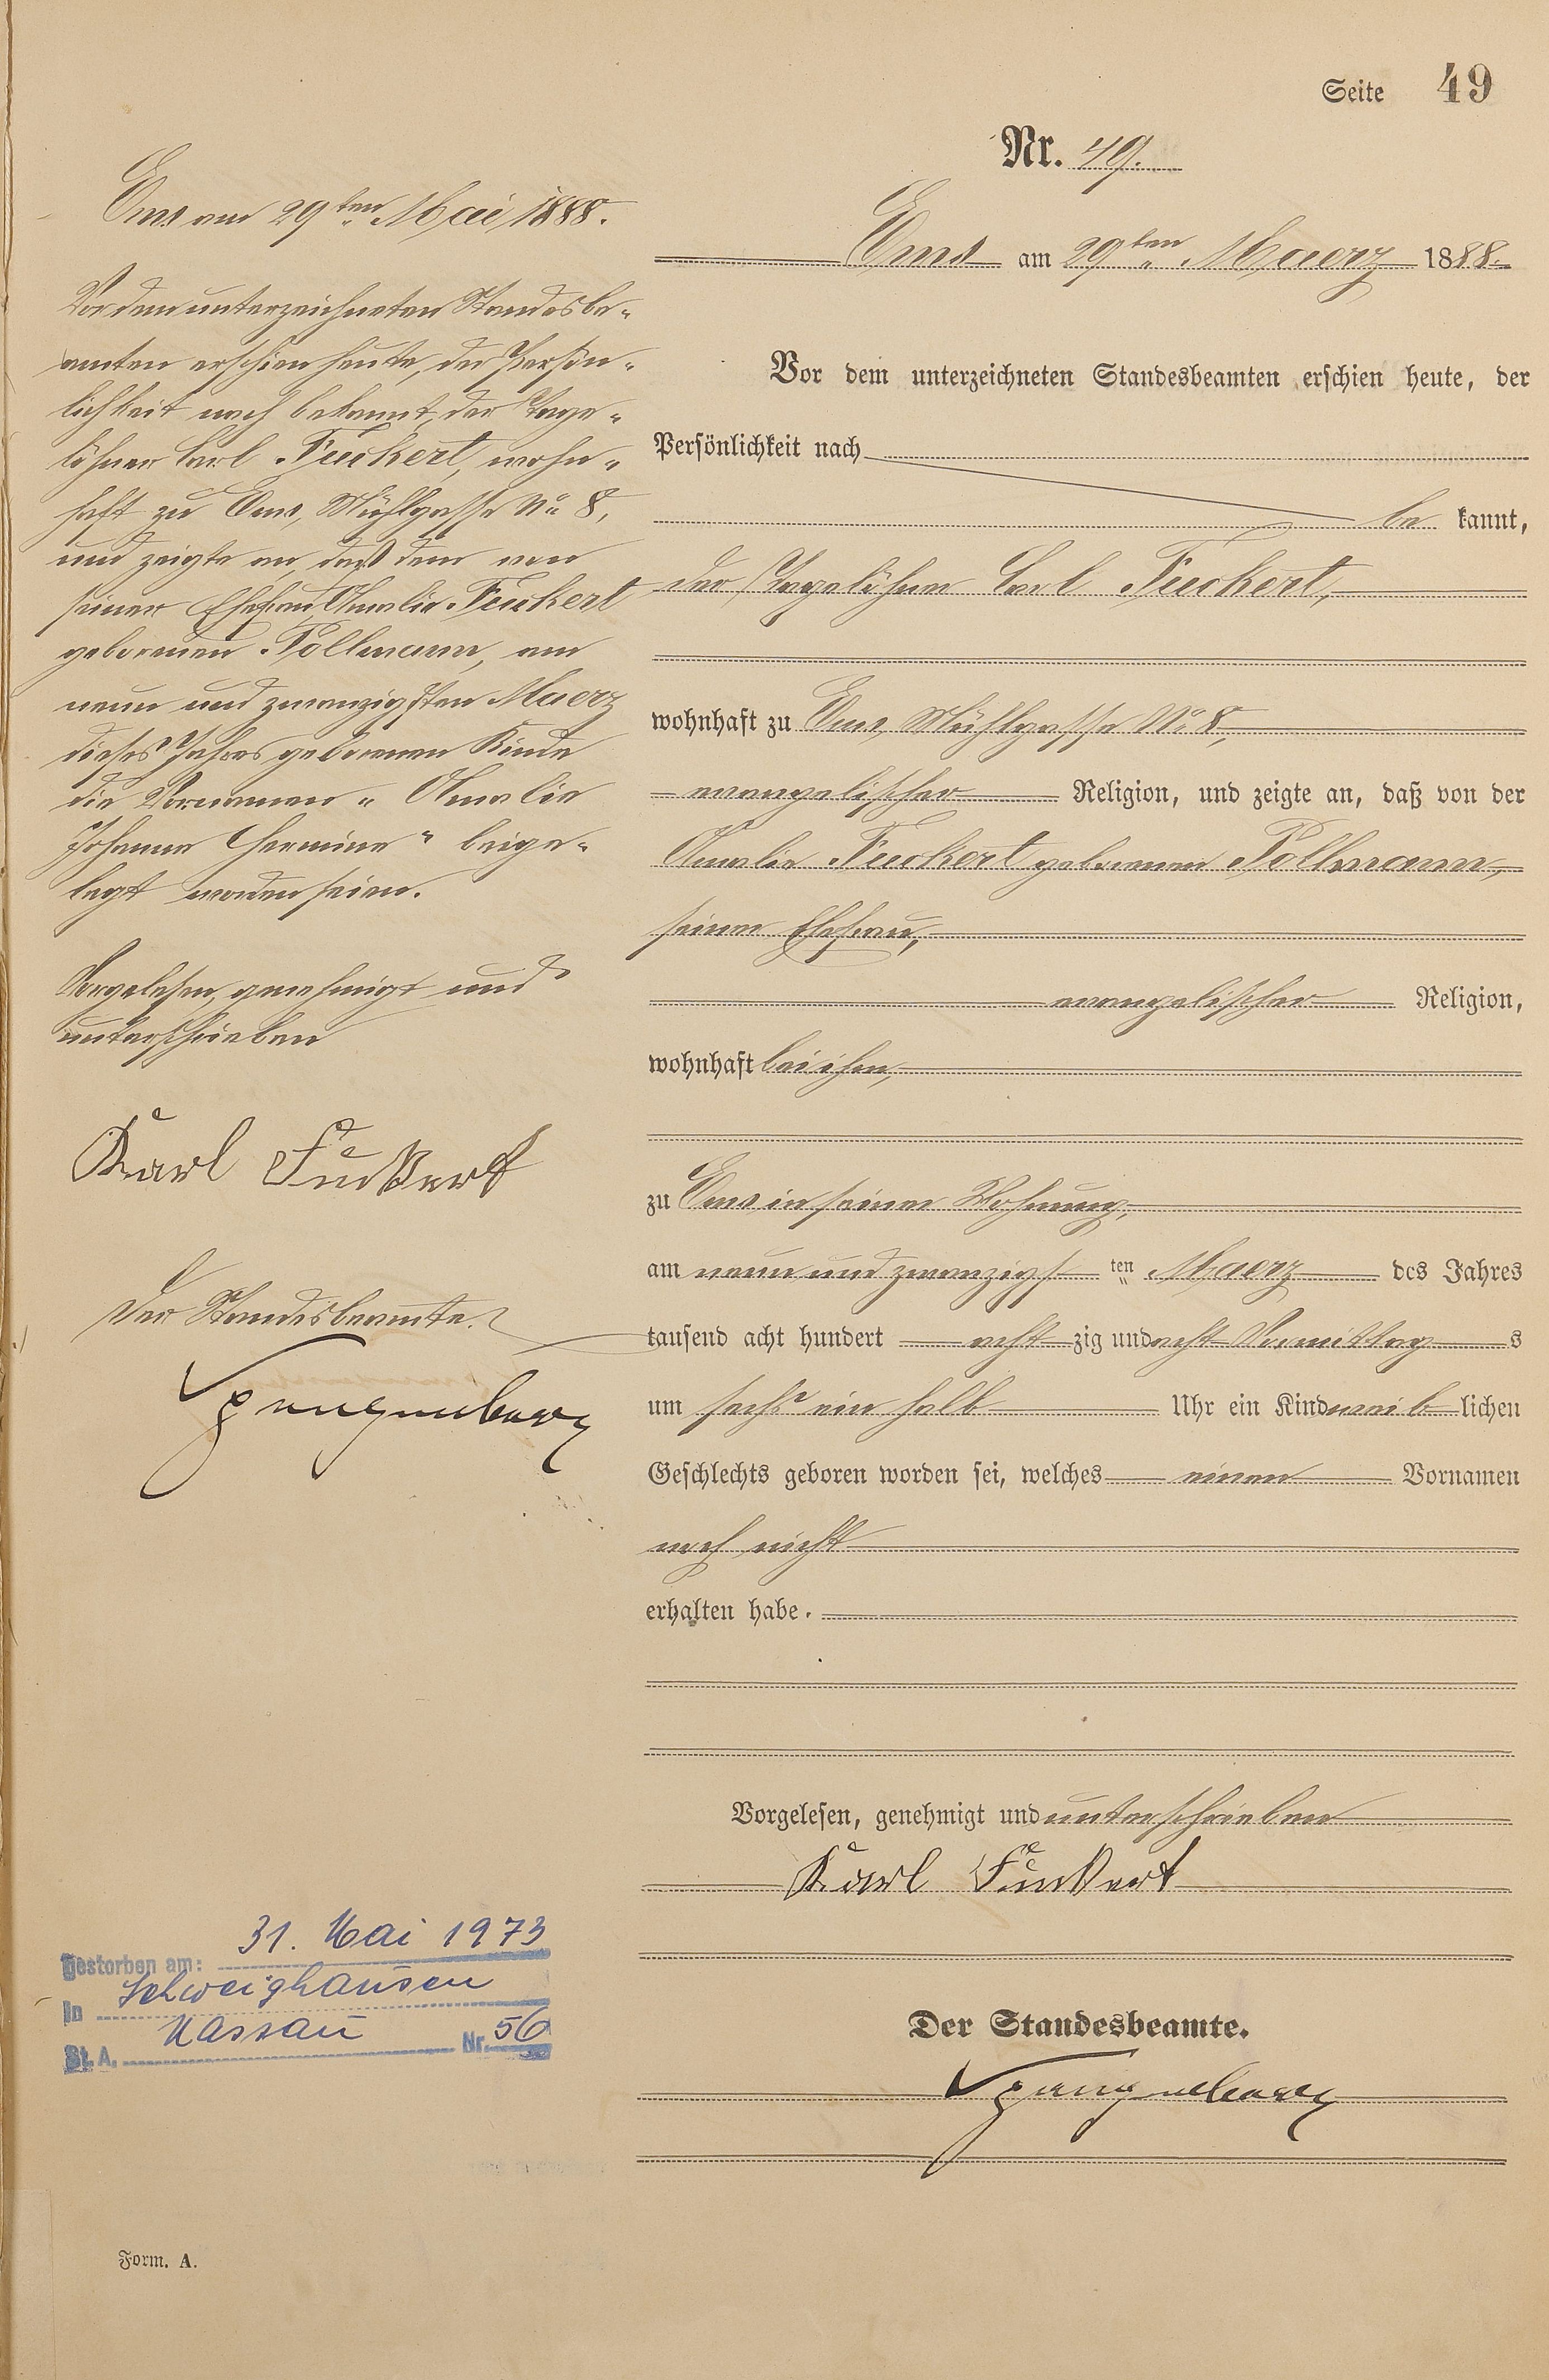 Seite 49
Nr. 49.
Ems am 29ten Maerz 1888.
Vor dem unterzeichneten Standesbeamten erschien heute, der
Persönlichkeit nach
be kannt,
der Tagelöhner Carl Feuckert,
wohnhaft zu Ems, Mühlgasse No 8,
evangelischer Religion, und zeigte an, daß von der
Amalie Feuckert geborenen Pollmann,
seiner Ehefrau,
evangelischer Religion,
wohnhaft bei ihm,
zu Ems in seiner Wohnung,
am neun und zwanzigs ten Maerz des Jahres
tausend acht hundert acht zig und acht Vormittag s
um sechs ein halb Uhr ein Kind weib lichen
Geschlechts geboren worden sei, welches einen Vornamen
noch nicht
erhalten habe.
Vorgelesen, genehmigt und unterschrieben
Karl Feuckert
Der Standesbeamte.
Ems am 29ten Mai 1888.
Vor dem unterzeichneten Standesbe-
amten erschien heute, der Persön-
lichkeit nach bekannt, der Tage-
löhner Carl Feuckert, wohn-
haft zu Ems, Mühlgasse No 8,
und zeigte an, daß dem von
seiner Ehefrau Amalie Feuckert
geborenen Pollmann, am
neun und zwanzigsten Maerz
dieses Jahres geborenen Kinde
die Vornamen „Amalie
Johanne Hermine“ beige-
legt worden seien.
Vorgelesen, genehmigt und
unterschrieben
Karl Feuckert
Der Standesbeamte.
gestorben am: 31. Mai 1973
in Schweighausen
St. A. Nassau Nr. 56
Form. A.